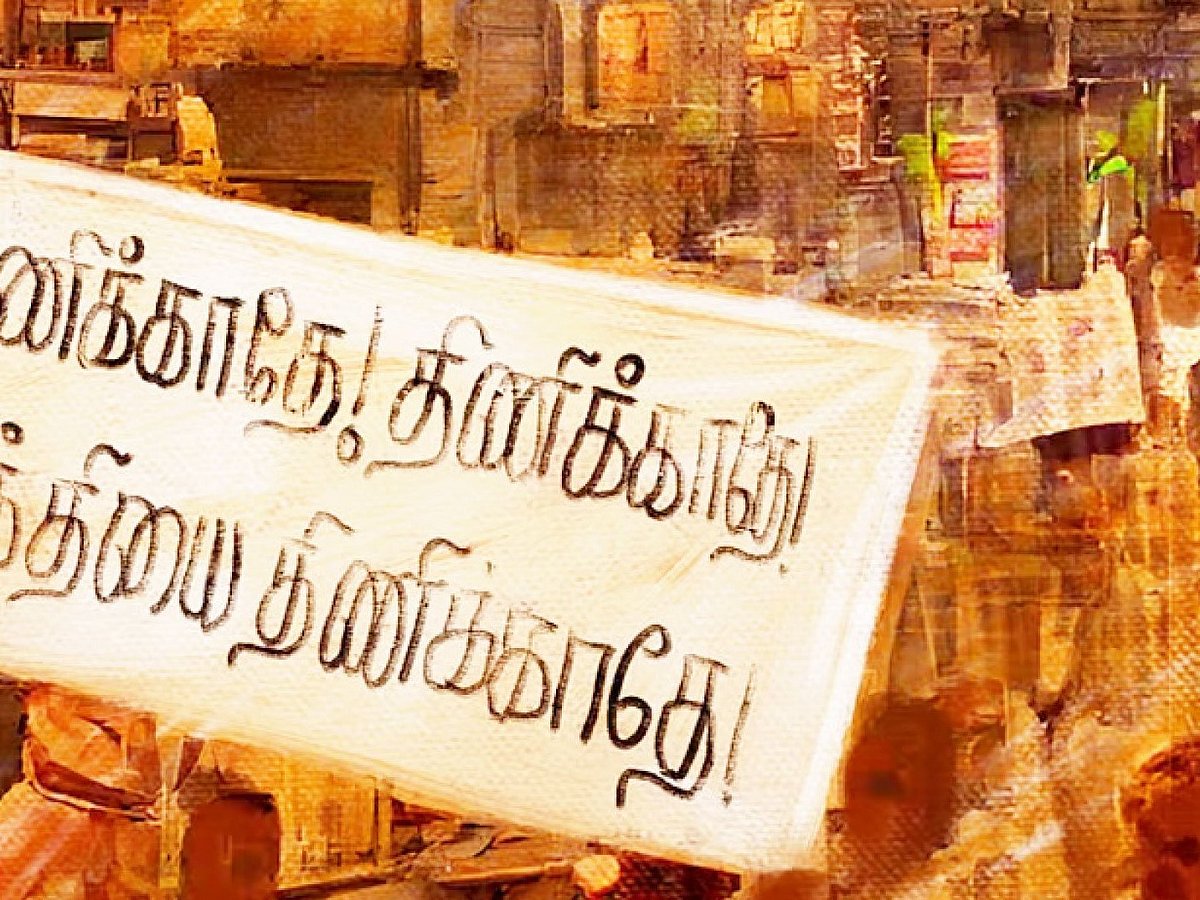 ணிக்காதே! திணிக்காதே!
த்தியை திணிக்காதே!